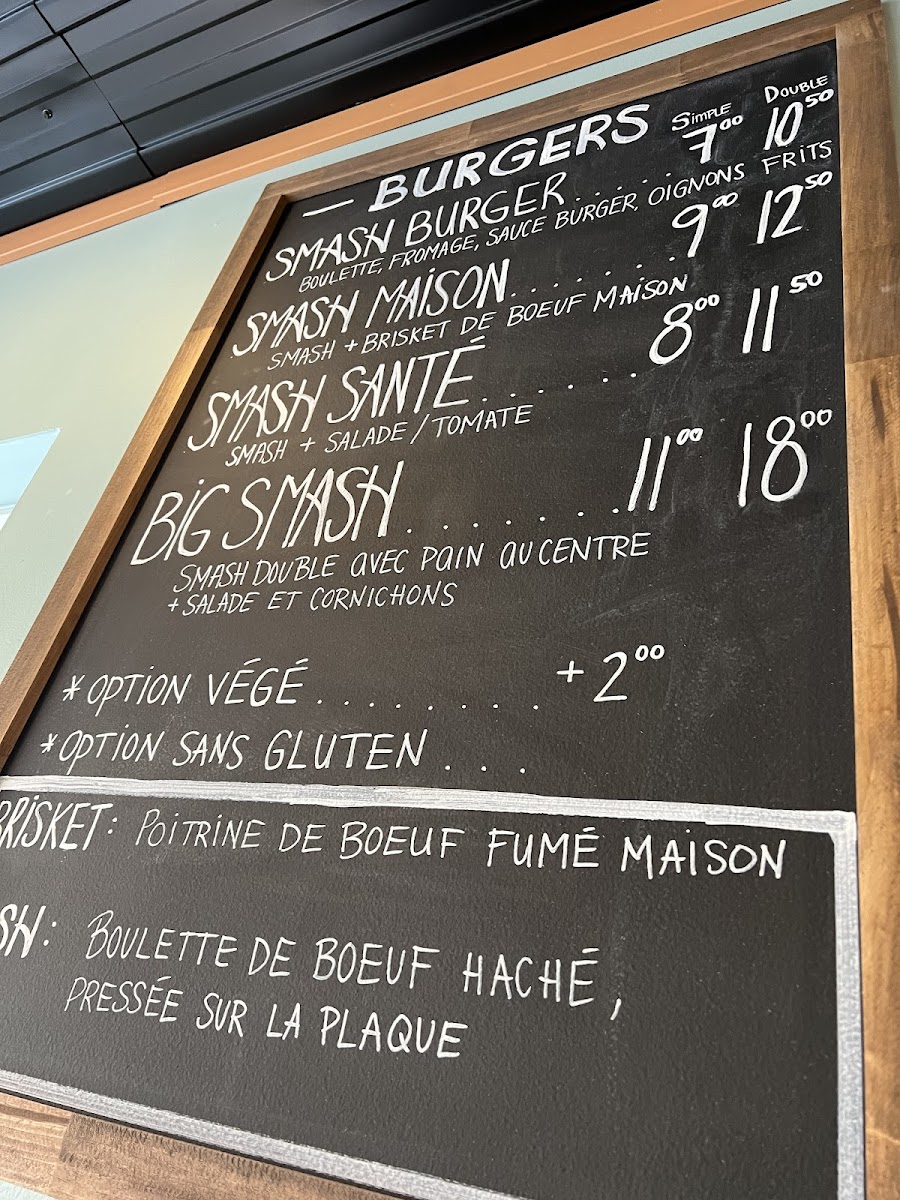 — BURGERS SIMPLE DOUBLE
SMASH BURGER...... 7⁰⁰ 10⁵⁰
BOULETTE, FROMAGE, SAUCE BURGER, OIGNONS FRITS
SMASH MAISON....... 9⁰⁰ 12⁵⁰
SMASH + BRISKET DE BOEUF MAISON
SMASH SANTÉ....... 8⁰⁰ 11⁵⁰
SMASH + SALADE / TOMATE
BIG SMASH......... 11⁰⁰ 18⁰⁰
SMASH DOUBLE AVEC PAIN AU CENTRE
+ SALADE ET CORNICHONS
* OPTION VÉGÉ......... + 2⁰⁰
* OPTION SANS GLUTEN...
BRISKET: POITRINE DE BOEUF FUMÉ MAISON
SH: BOULETTE DE BOEUF HACHÉ,
PRESSÉE SUR LA PLAQUE